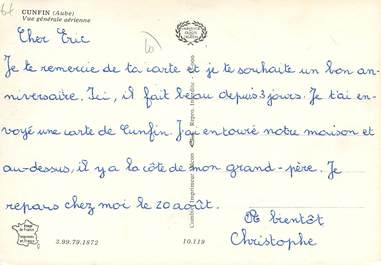 CUNFIN (Aube)
Vue générale aérienne
Cher Eric
Je te remercie de ta carte et je te souhaite un bon an-
niversaire. Ici, il fait beau depuis 3 jours. Je t'ai en-
voyé une carte de Cunfin. J'ai entouré notre maison et
au-dessus, il y a la côte de mon grand-père. Je
repars chez moi le 20 août.
A bientôt
Christophe
3.99.79.1872
10.119